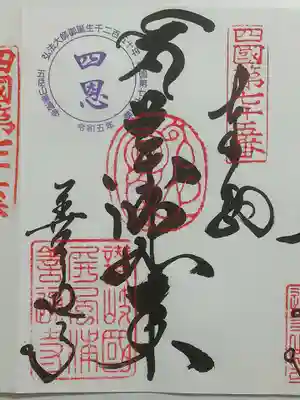 四國第七十五番
奉納
薬師如来
善通寺
讃岐國
屏風浦
善通寺
弘法大師御誕生千二百五十年
四恩
令和五年
四國第七